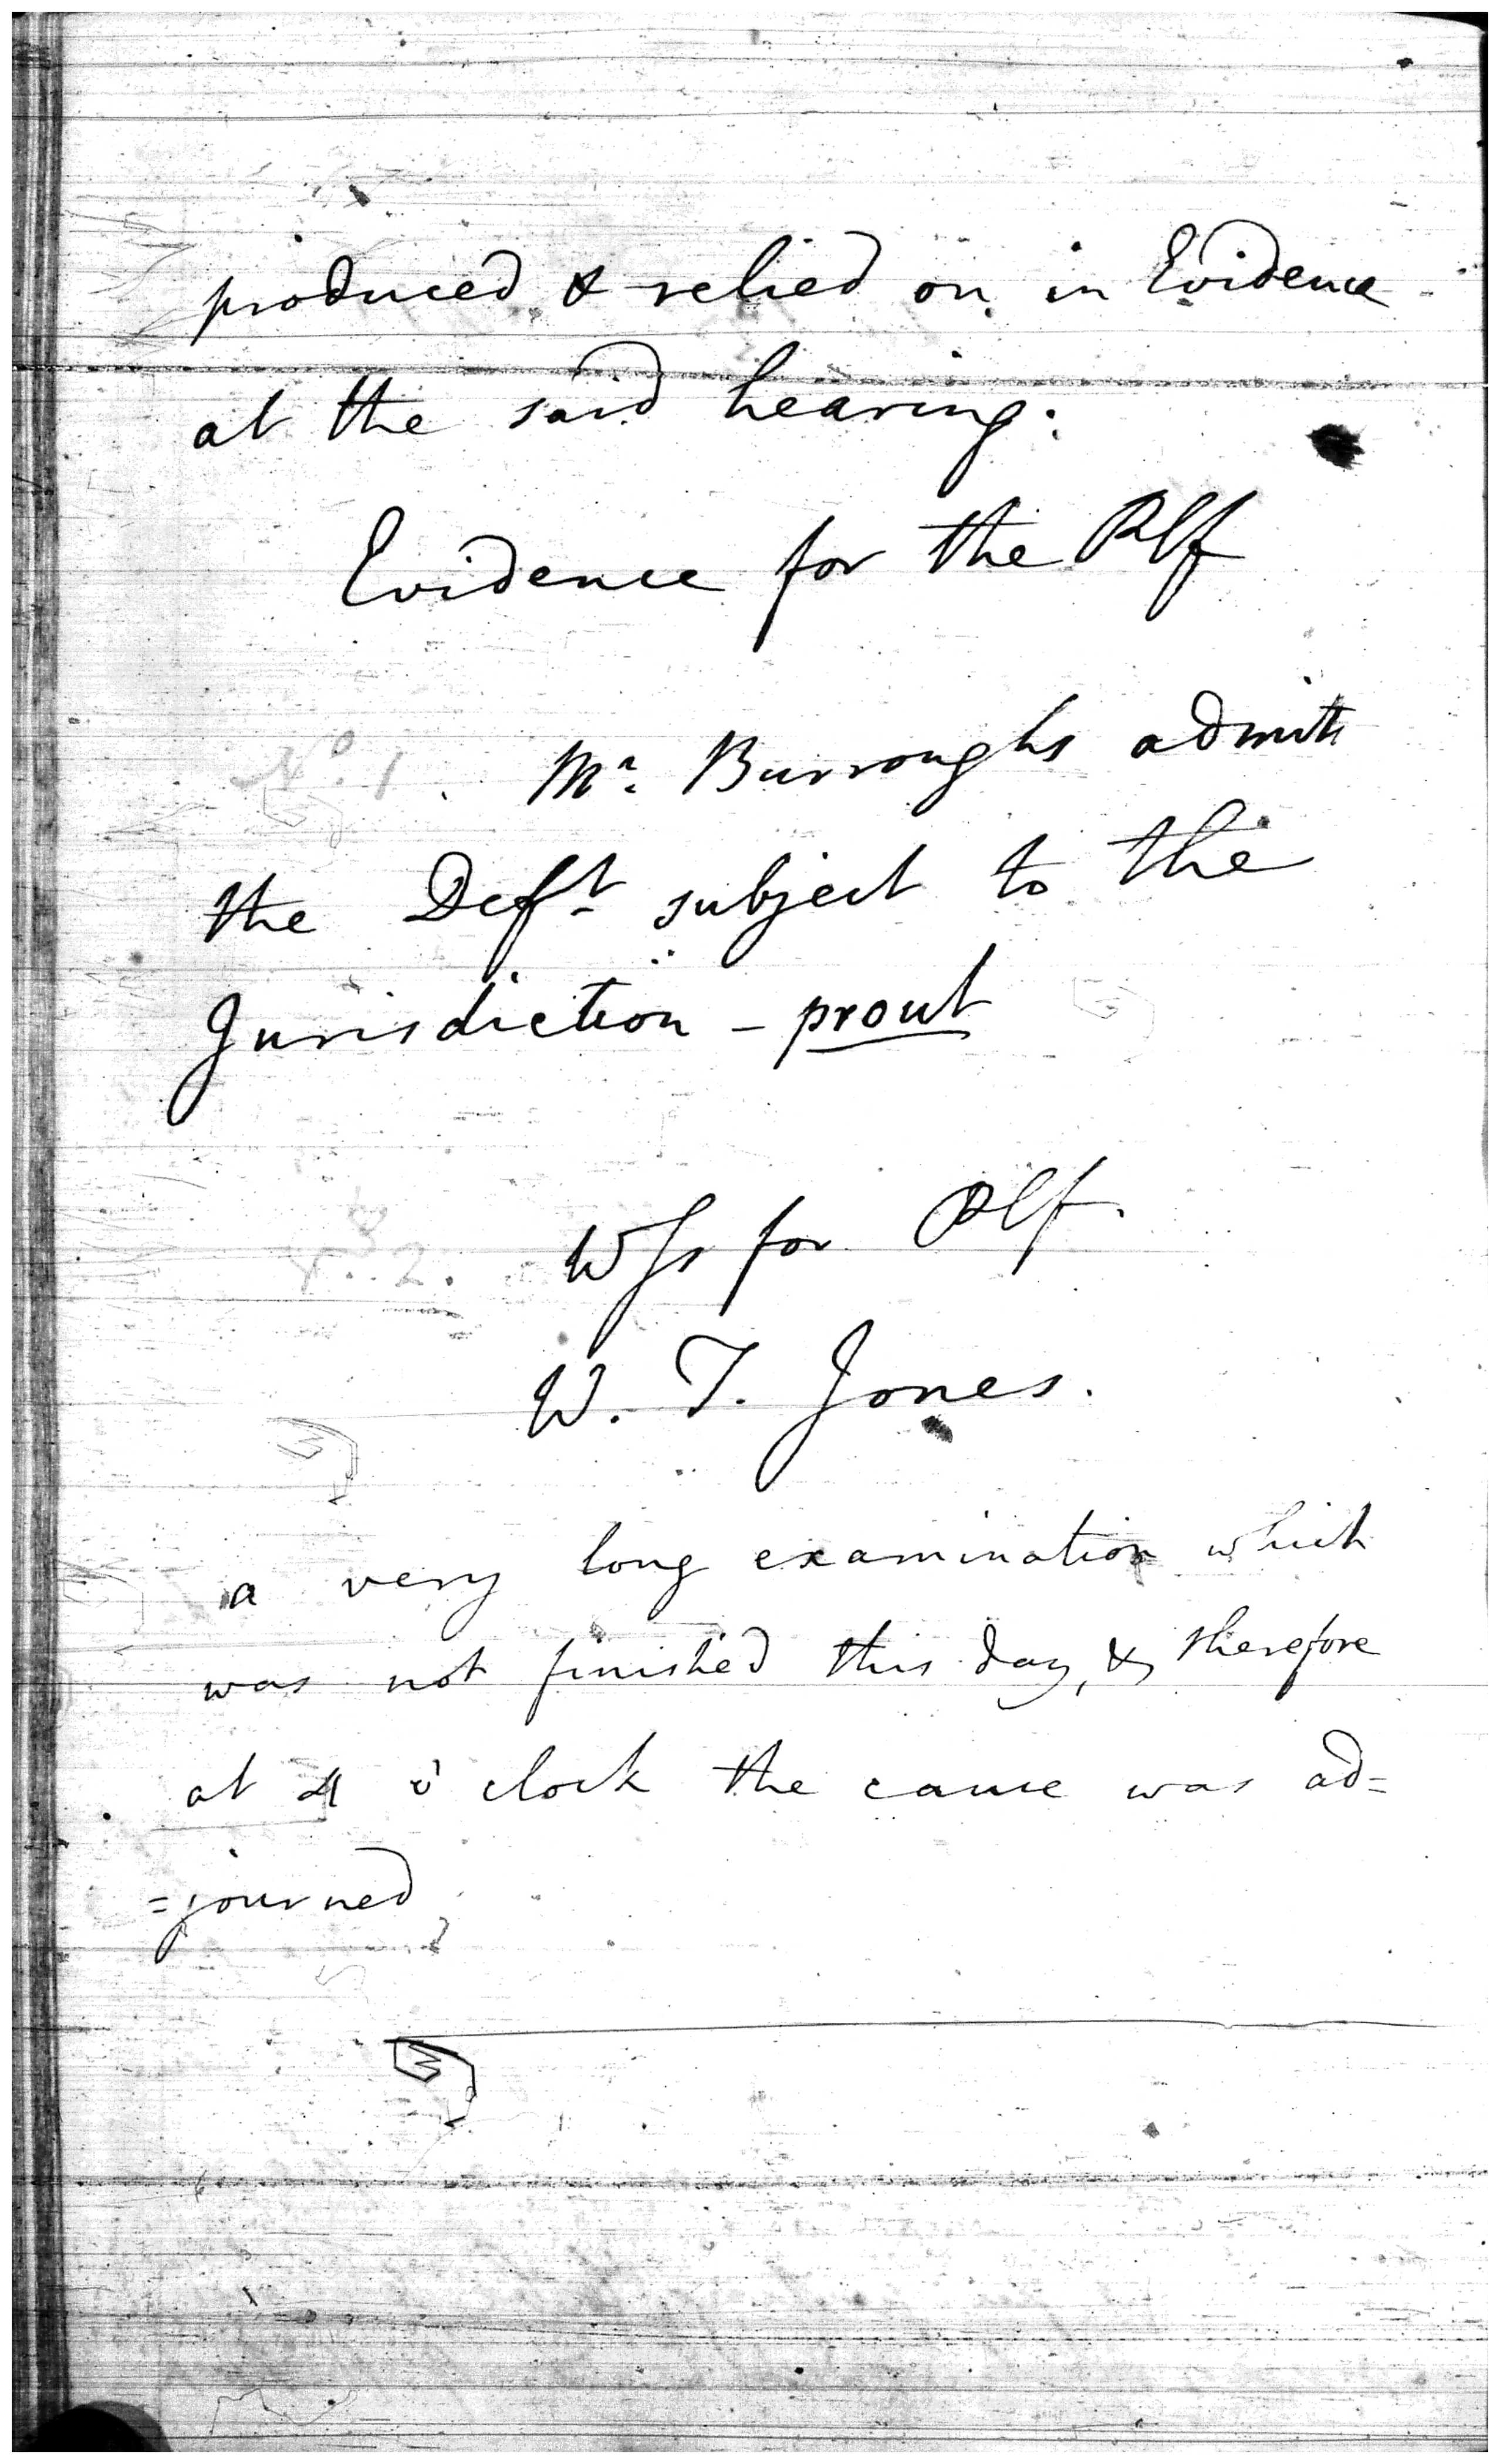 produced & relied on in Evidence
at the said hearing.
Evidence for the Plf
No. 1
Mr. Burroughs admits
the Deft. subject to the
Jurisdiction - prout
2.
Wss for Plf.
W. T. Jones.
a very long examination which
was not finished this day, & therefore
at 4 o'clock the cause was ad=
=journed